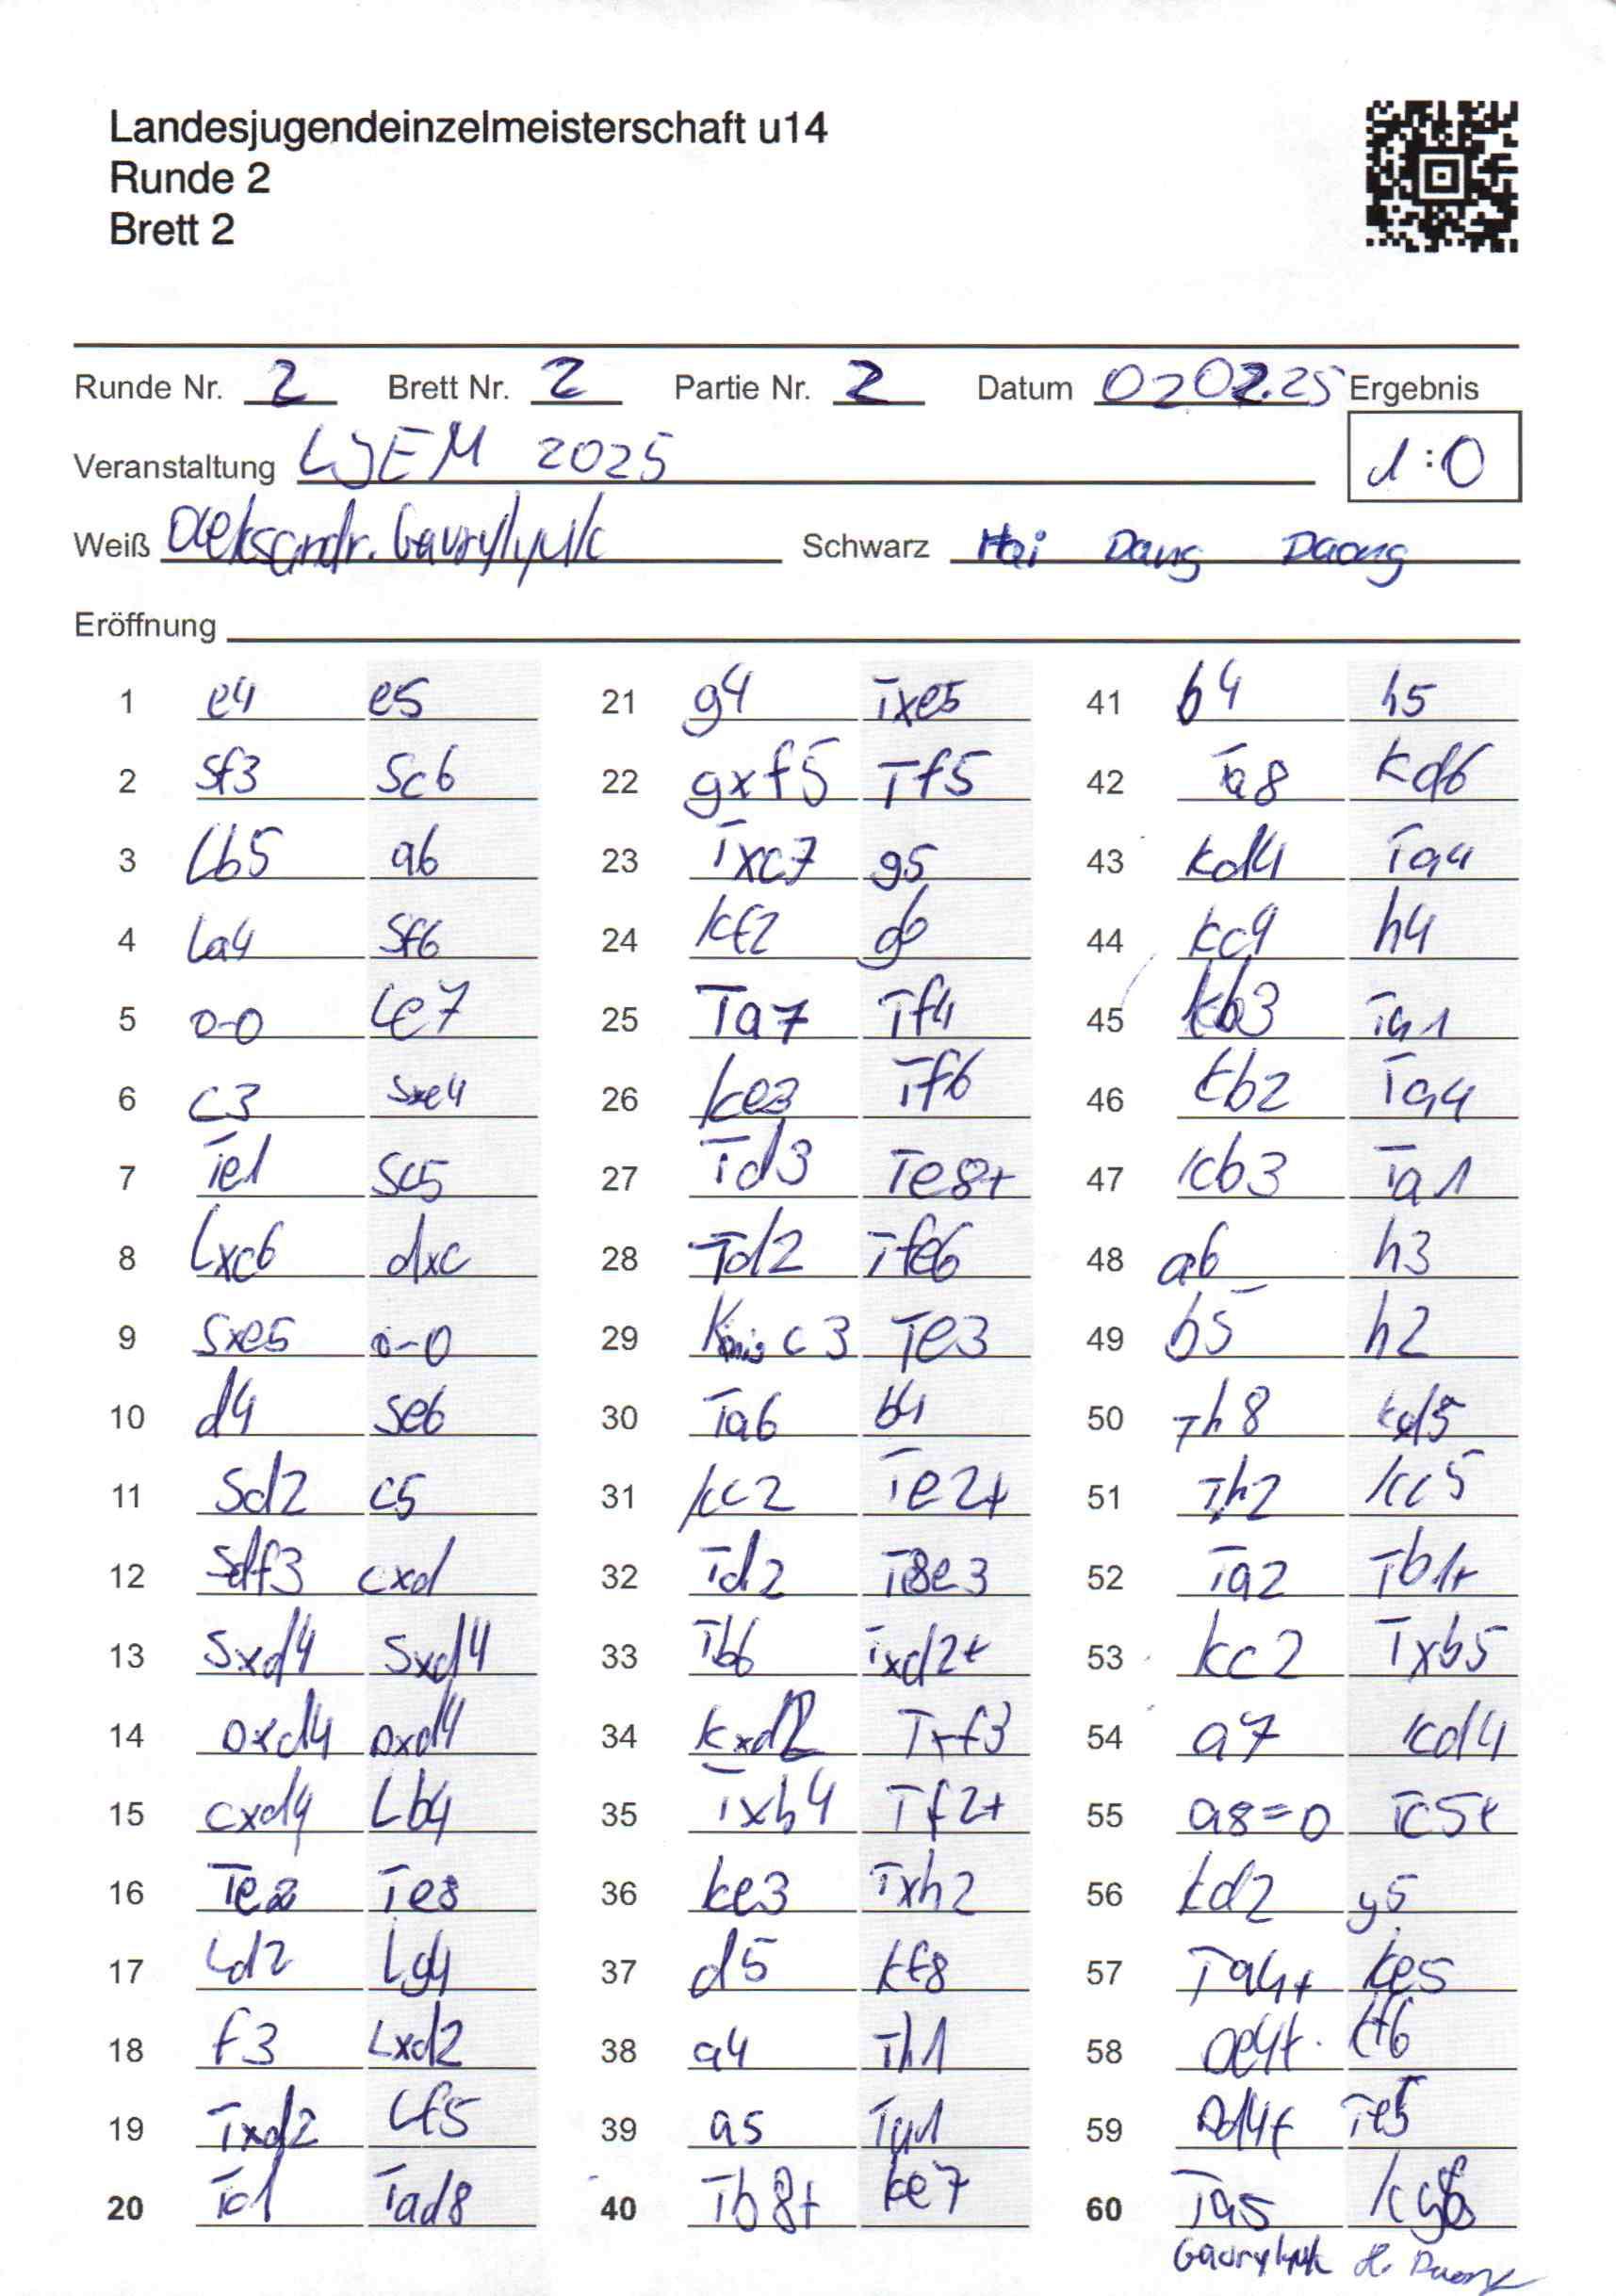 Landesjugendeinzelmeisterschaft u14
Runde 2
Brett 2
Runde Nr. 2 Brett Nr. 2 Partie Nr. 2 Datum 02 02.25 Ergebnis
Veranstaltung LJEM 2025 1:0
Weiß Oleksandr. Gavrylyuk Schwarz Hai Dang Duong
Eröffnung
1 e4 e5
2 Sf3 Sc6
3 Lb5 a6
4 La4 Sf6
5 0-0 Le7
6 c3 Sxe4
7 Te1 Sc5
8 Lxc6 dxc
9 Sxe5 0-0
10 d4 Se6
11 Sd2 c5
12 Sdf3 cxd
13 Sxd4 Sxd4
14 Dxd4 Dxd4
15 cxd4 Lb4
16 Te2 Te8
17 Ld2 Lg4
18 f3 Lxd2
19 Txd2 Lf5
20 Tc1 Tad8
21 g4 Txe5
22 gxf5 Tf5
23 Txc7 g5
24 Kf2
25 Ta7 Tf4
26 Ke3 Tf6
27 Td3 Te8+
28 Td2 Tfe6
29 König c3 Te3
30 Ta6 b4
31 Kc2 Te2+
32 Td2 T8e3
33 Tb6 Txd2+
34 Kxd2 Txf3
35 Txb4 Tf2+
36 Ke3 Txh2
37 d5 Kf8
38 a4 Th1
39 a5 Ta1
40 Tb8+ Ke7
41 b4 h5
42 Ta8 Kd6
43 Kd4 Ta4
44 Kc4 h4
45 Kb3 Ta1
46 Kb2 Ta4
47 Kb3 Ta1
48 a6 h3
49 b5 h2
50 Th8 Kxd5
51 Th2 Kc5
52 Ta2 Tb1+
53 Kc2 Txb5
54 a7 Kd4
55 a8=D Tc5+
56 Kd2 g5
57 Ta4+ Ke5
58 De4+. Kf6
59 Dd4+ Te5
60 Ta5 Kg6
Gavrylyuk H. Duong